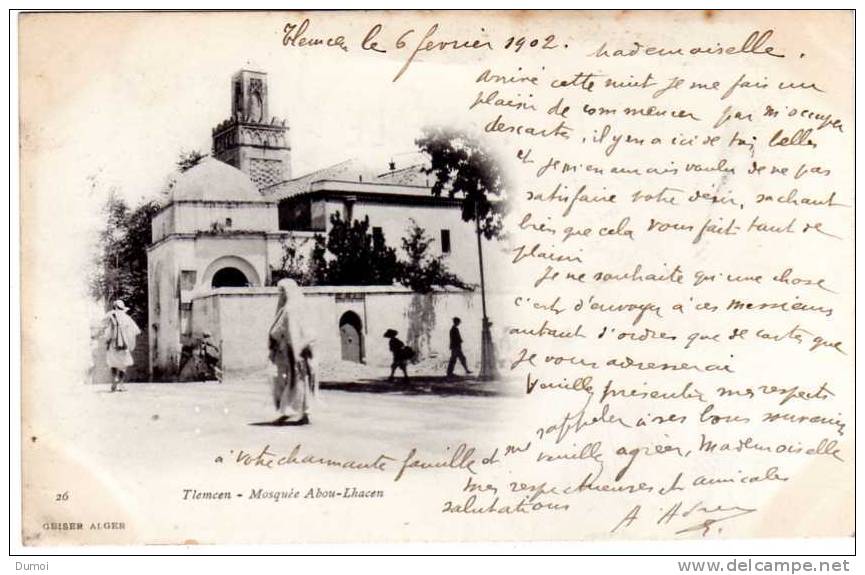 Tlemcen le 6 fevrier 1902.
Mademoiselle,
Arrivé cette nuit je me fais un
plaisir de commencer par m'occuper
des cartes, il y en a ici de très belles
et je m'en aurais voulu de ne pas
satisfaire votre désir, sachant
bien que cela vous fait tant de
plaisir.
Je ne souhaite qu'une chose
c'est d'envoyer à ces messieurs
autant d'ordres que de cartes que
je vous adresserai
Veuillez présenter mes respects
à votre charmante famille et me
rappeler à ses bons souvenirs
veuillez agréer, Mademoiselle
mes respectueuses et amicales
salutations
26
Tlemcen - Mosquée Abou-Lhacen
GEISER ALGER
Dumoi
www.delcampe.net